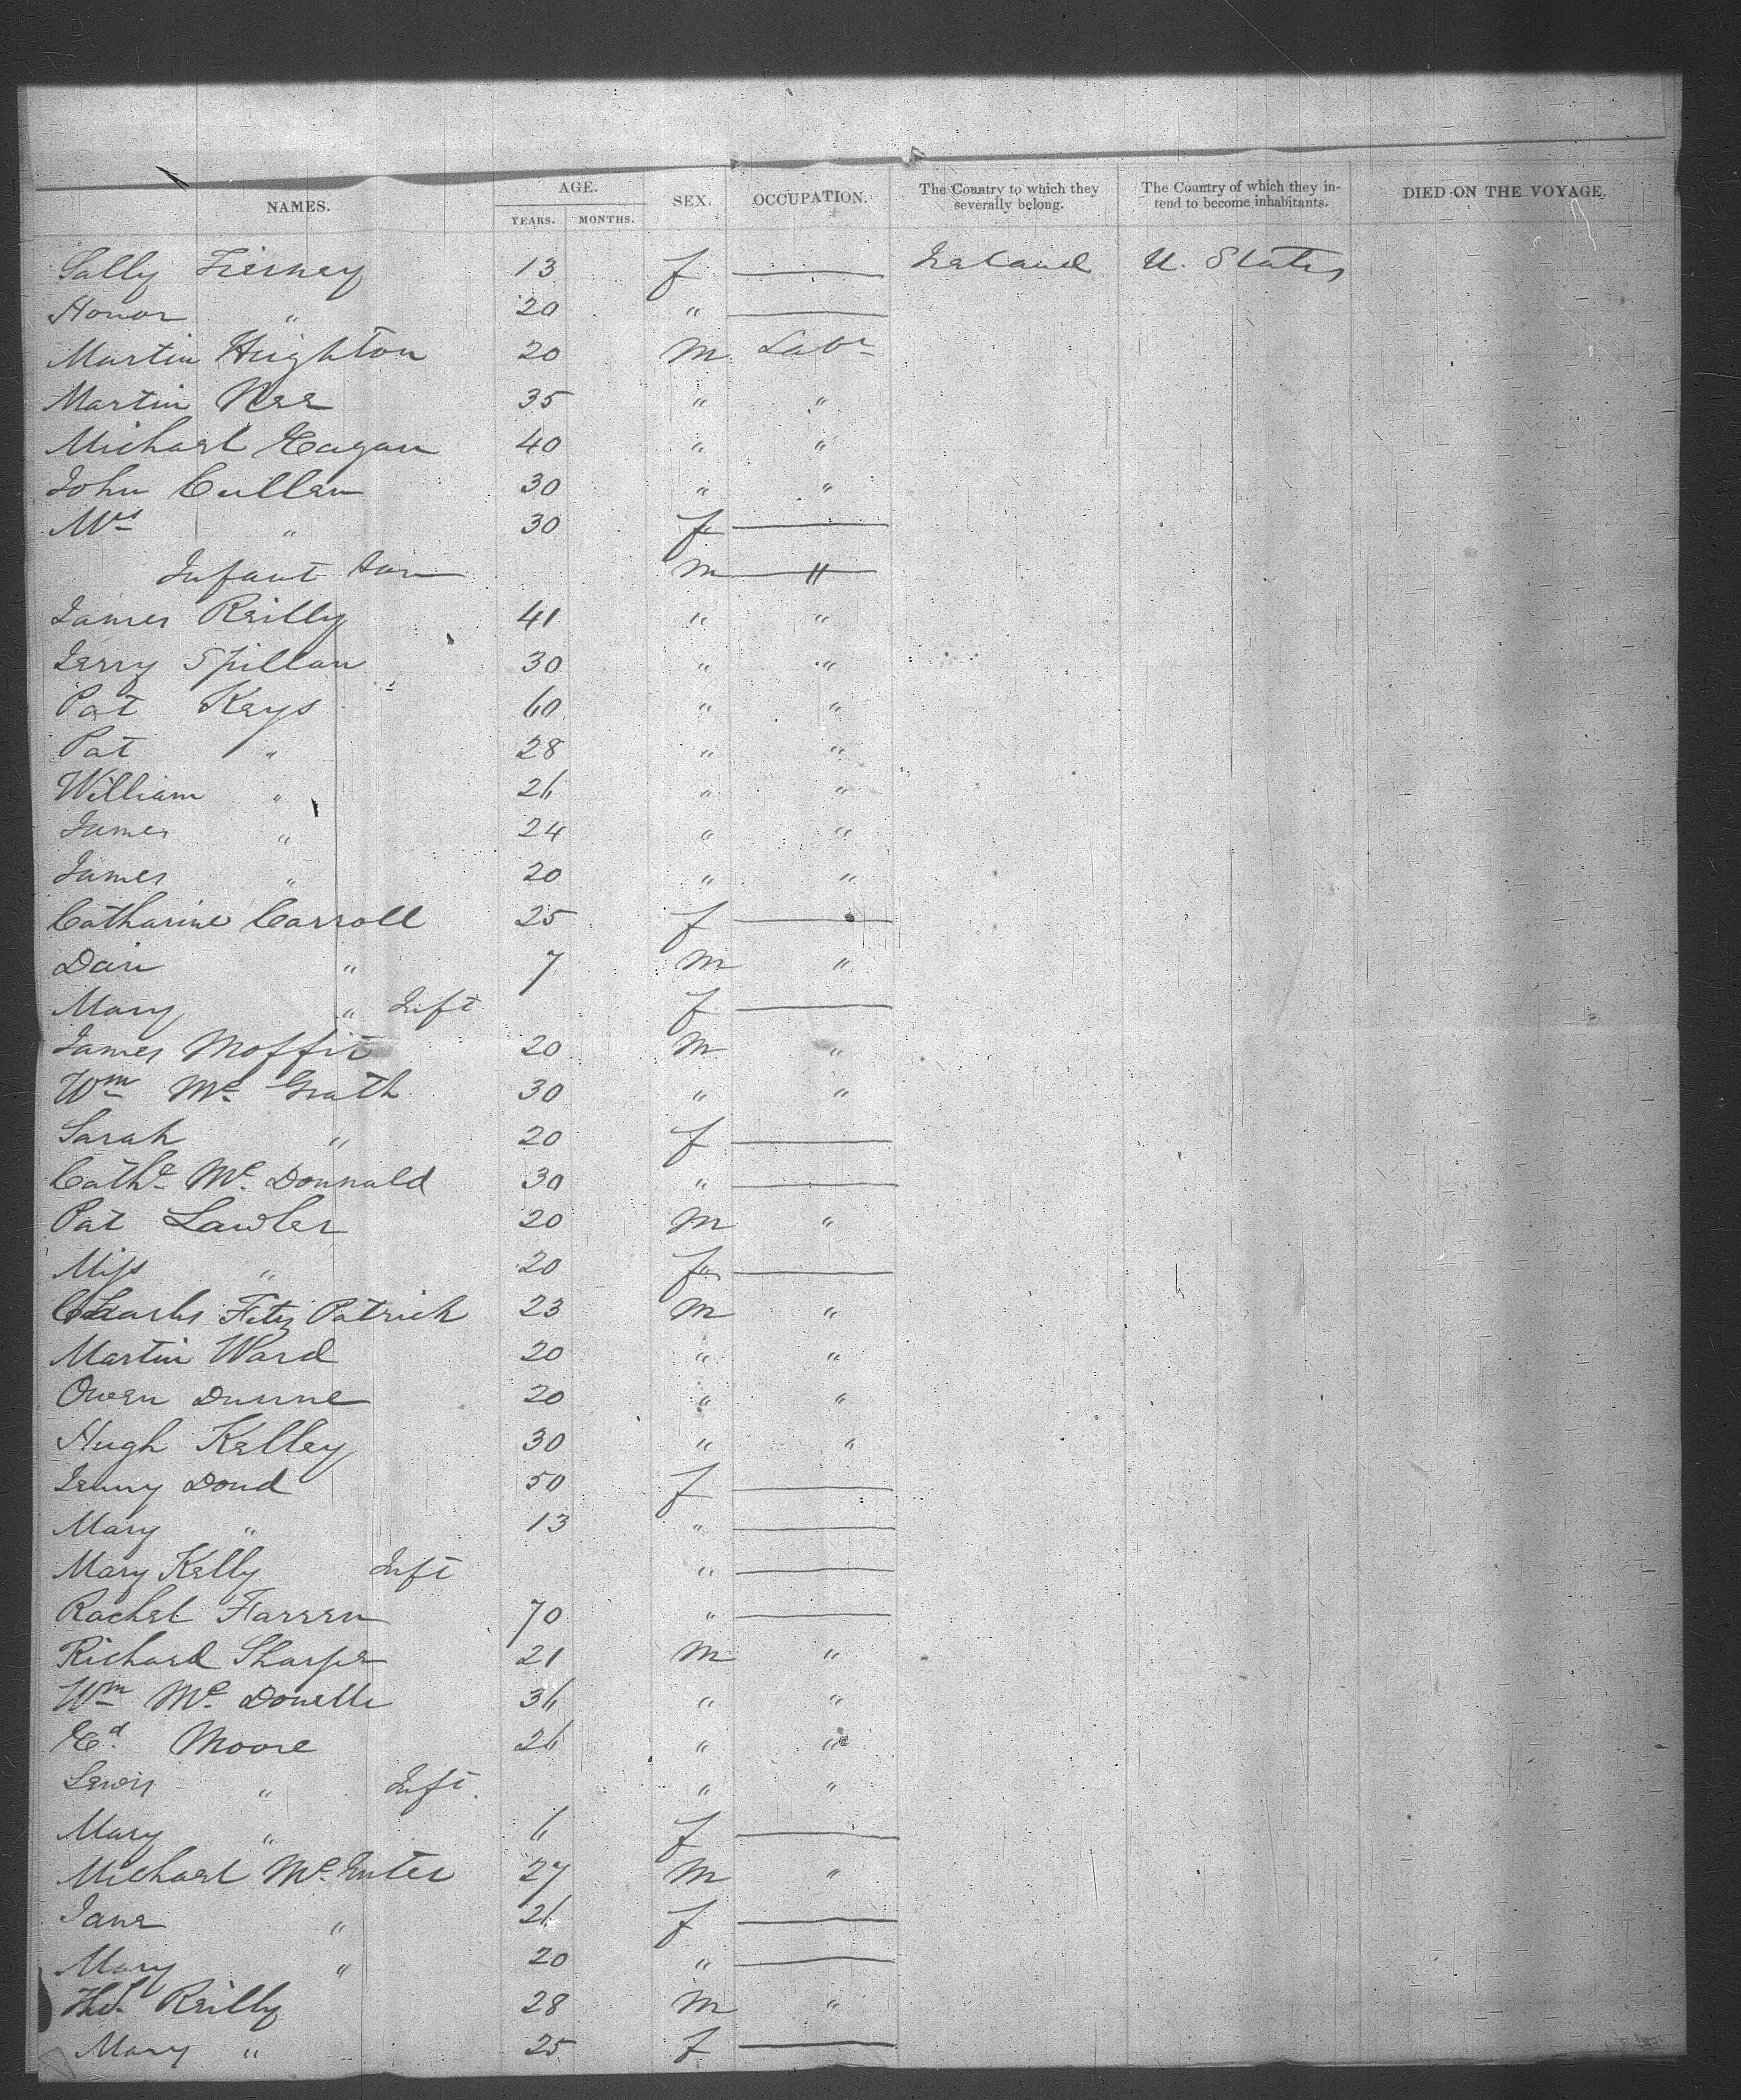 NAMES. AGE. YEARS. MONTHS. SEX. OCCUPATION. The Country to which they severally belong. The Country of which they intend to become inhabitants. DIED ON THE VOYAGE.
Sally Tierney 13 f — Ireland U. States
Honor " 20 " —
Martin Heighton 20 M Labr
Martin Nee 35 " "
Michael Eagan 40 " "
John Cullen 30 " "
Mrs " 30 f —
Infant son M "
James Reilly 41 " "
Jerry Spillan 30 " "
Pat Keys 60 " "
Pat " 28 " "
William " 26 " "
James " 24 " "
James " 20 " "
Catharine Carroll 25 f —
Dan " 7 M "
Mary " Inft f —
James Moffit 20 M "
Wm Mc Grath 30 " "
Sarah " 20 f —
Cathe Mc Donnald 30 " —
Pat Lawler 20 M "
Miss " 20 f —
Charles Fitz Patrick 23 M "
Martin Ward 20 " "
Owen Dunne 20 " "
Hugh Kelley 30 " "
Jenny Doud 50 f —
Mary " 13 " —
Mary Kelly Inft " —
Rachel Farren 70 " —
Richard Sharpe 21 M "
Wm Mc Donelle 36 " "
Ed Moore 26 " "
Lewis " Inft. " "
Mary " 6 f —
Michael Mc Enter 27 M "
Jane " 26 f —
Mary " 20 " —
Thos. Reilly 28 M "
Mary " 25 f —